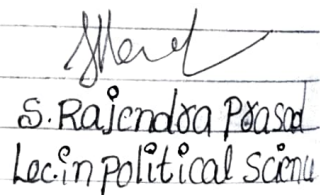 S. Rajendra Prasad
Lec. in political Scienu